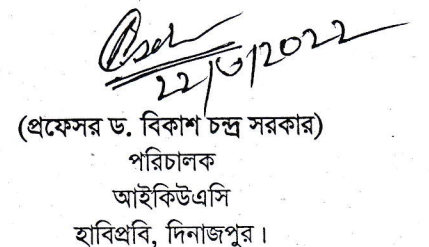 ২২/৩/২০২২
(প্রফেসর ড. বিকাশ চন্দ্র সরকার)
পরিচালক
আইকিউএসি
হাবিপ্রবি, দিনাজপুর।